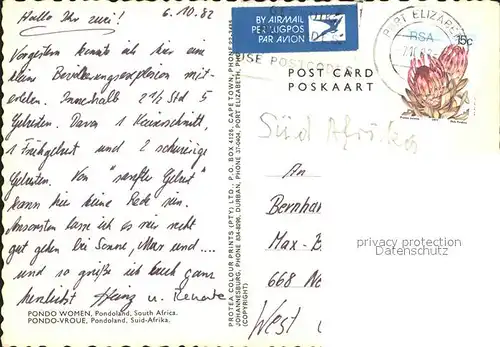 Hallo Ihr zwei! 6.10.82
Vorgestern konnte ich hier eine
kleine Bevölkerungsexplosion mit-
erleben. Innerhalb 2 1/2 Std 5
Geburten. Davon 1 Kaiserschnitt,
1 Frühgeburt und 2 schwierige
Geburten. Von "sanfter Geburt"
kann hier keine Rede sein.
Ansonsten lasse ich es mir recht
gut gehen bei Sonne, Meer und....
und so grüße ich Euch ganz
herzlichst Heinz u. Renate
PONDO WOMEN, Pondoland, South Africa.
PONDO-VROUE, Pondoland, Suid-Afrika.
PROTEA COLOUR PRINTS (PTY) LTD., P.O. BOX 4126, CAPE TOWN, PHONE
JOHANNESBURG, PHONE 834-8296, DURBAN, PHONE 37-0404, PORT ELIZABETH, PHONE
(COPYRIGHT)
BY AIRMAIL
PER LUGPOS
PAR AVION
USE POSTCODE
PORT ELIZABETH
RSA
15c
POST CARD
POSKAART
Süd Afrika
An
Bernhar
Max-B
668 Ne
West
privacy protection
Datenschutz